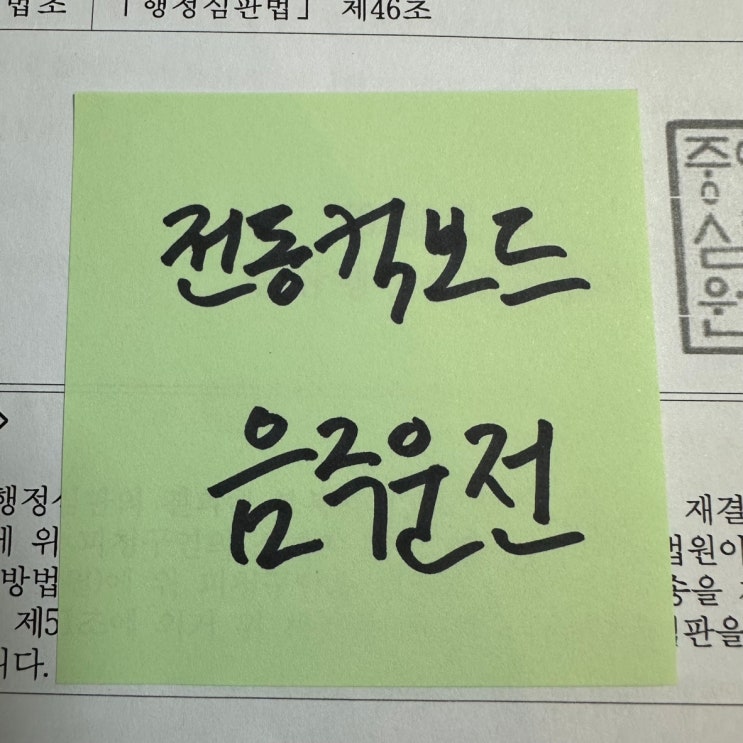 법조 「행정심판법」 제46조
전동킥보드
음주운전
중
심
원
행정심 재결
에 위 법원이
방법 송을
제5 심판을
니다.